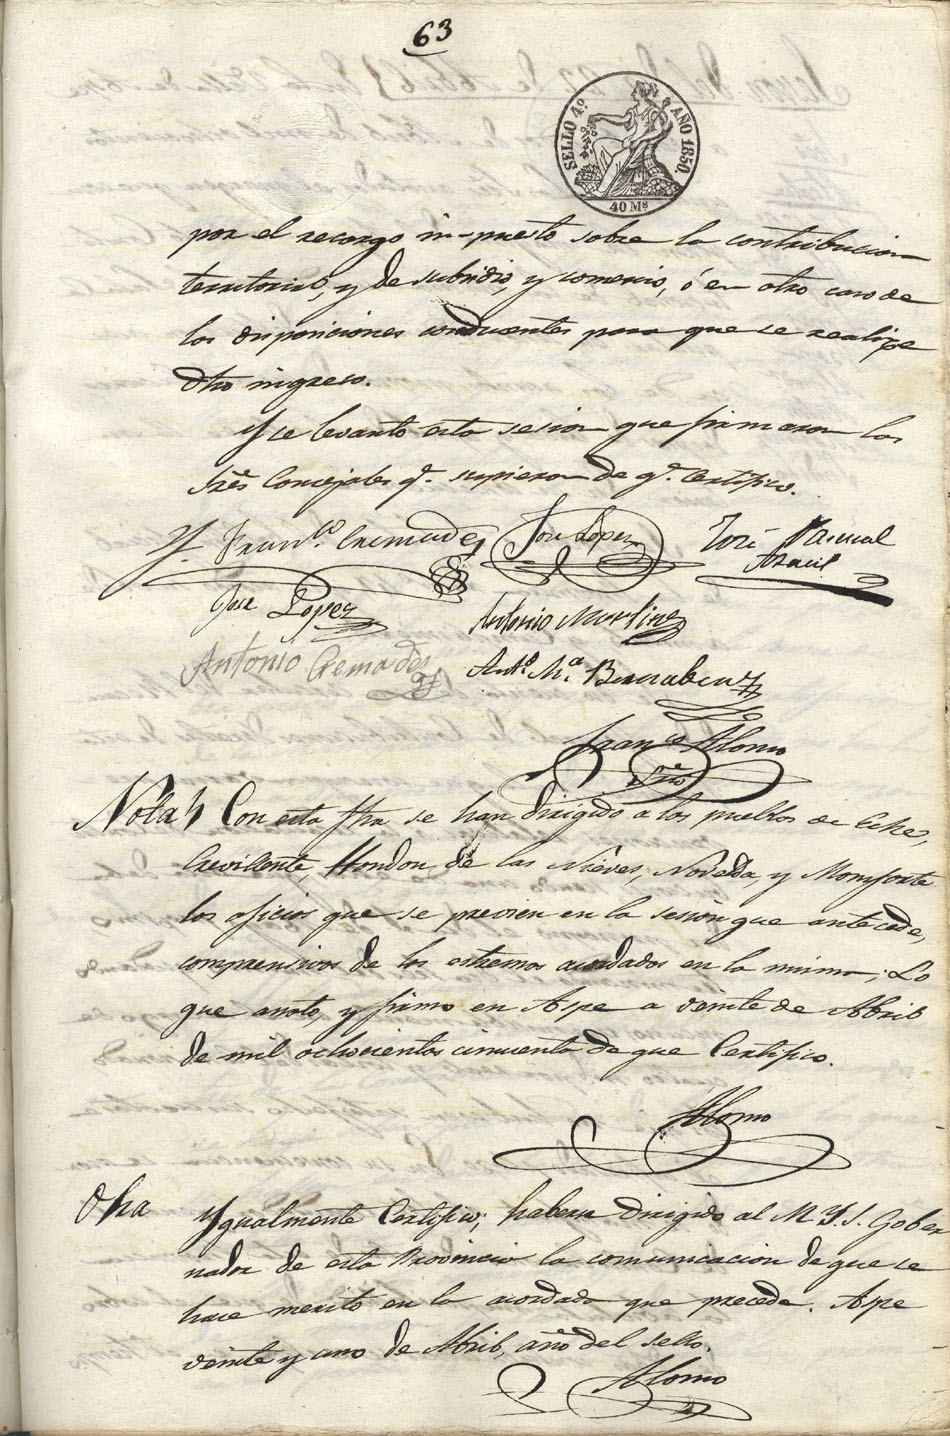 63
SELLO 4º AÑO 1850.
40 Ms
por el recargo impuesto sobre la contribucion
territorial, y de subsidio, y comercio, ó en otro caso de
las disposiciones conducentes para que se realize
dho ingreso.
Y se levanto esta sesion que firmaron los
Sres Concejales q.e supieron de q.e Certifico.
Y. Franco. Cremades José Lopez José Pascual
Azacil
Jose Lopez Antonio Martinez
Antonio Cremades Anto. Ma. Bernabeu
Franco Alonso
Srio
Nota Con esta fha se han dirigido a los pueblos de Elche,
Crevillente, Hondon de las Nieves, Novelda, y Monforte
los oficios que se previen en la sesion que antecede,
comprensivos de los estremos acordados en la misma; Lo
que anoto, y firmo en Aspe a veinte de Abril
de mil ochocientos cincuenta de que Certifico.
Alonso
Otra Ygualmente Certifico; haberse dirigido al M. Y. S. Gober
nador de esta Provincia la comunicacion de que se
hace merito en lo acordado que precede. Aspe
veinte y uno de Abril, año del sello.
Alonso